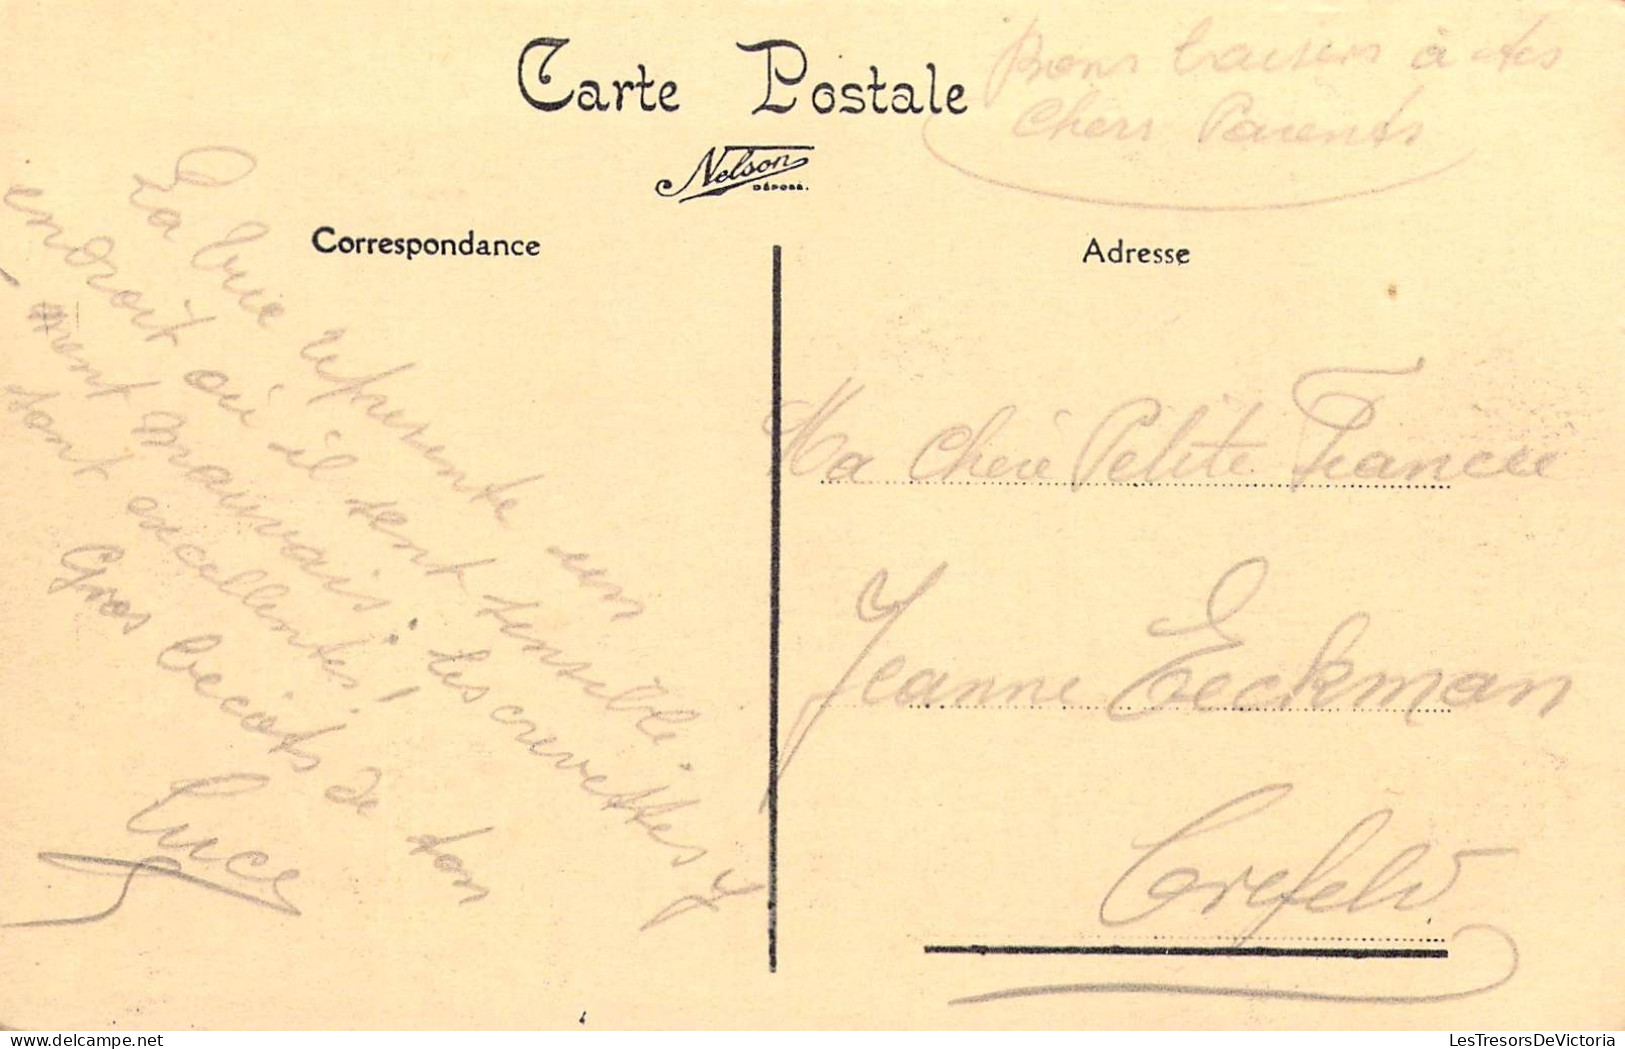 Carte Postale
Nelson
DÉPOSÉ.
Bons baisers à tes
chers Parents
Correspondance
Adresse
La vue représente un
endroit où il sent sensible-
ment mauvais; les crevettes y
sont excellentes!
Gros bécots de ton
Luce
Ma chère Petite Fiancée
Jeanne Eeckman
Crefeld
LesTresorsDeVictoria
www.delcampe.net